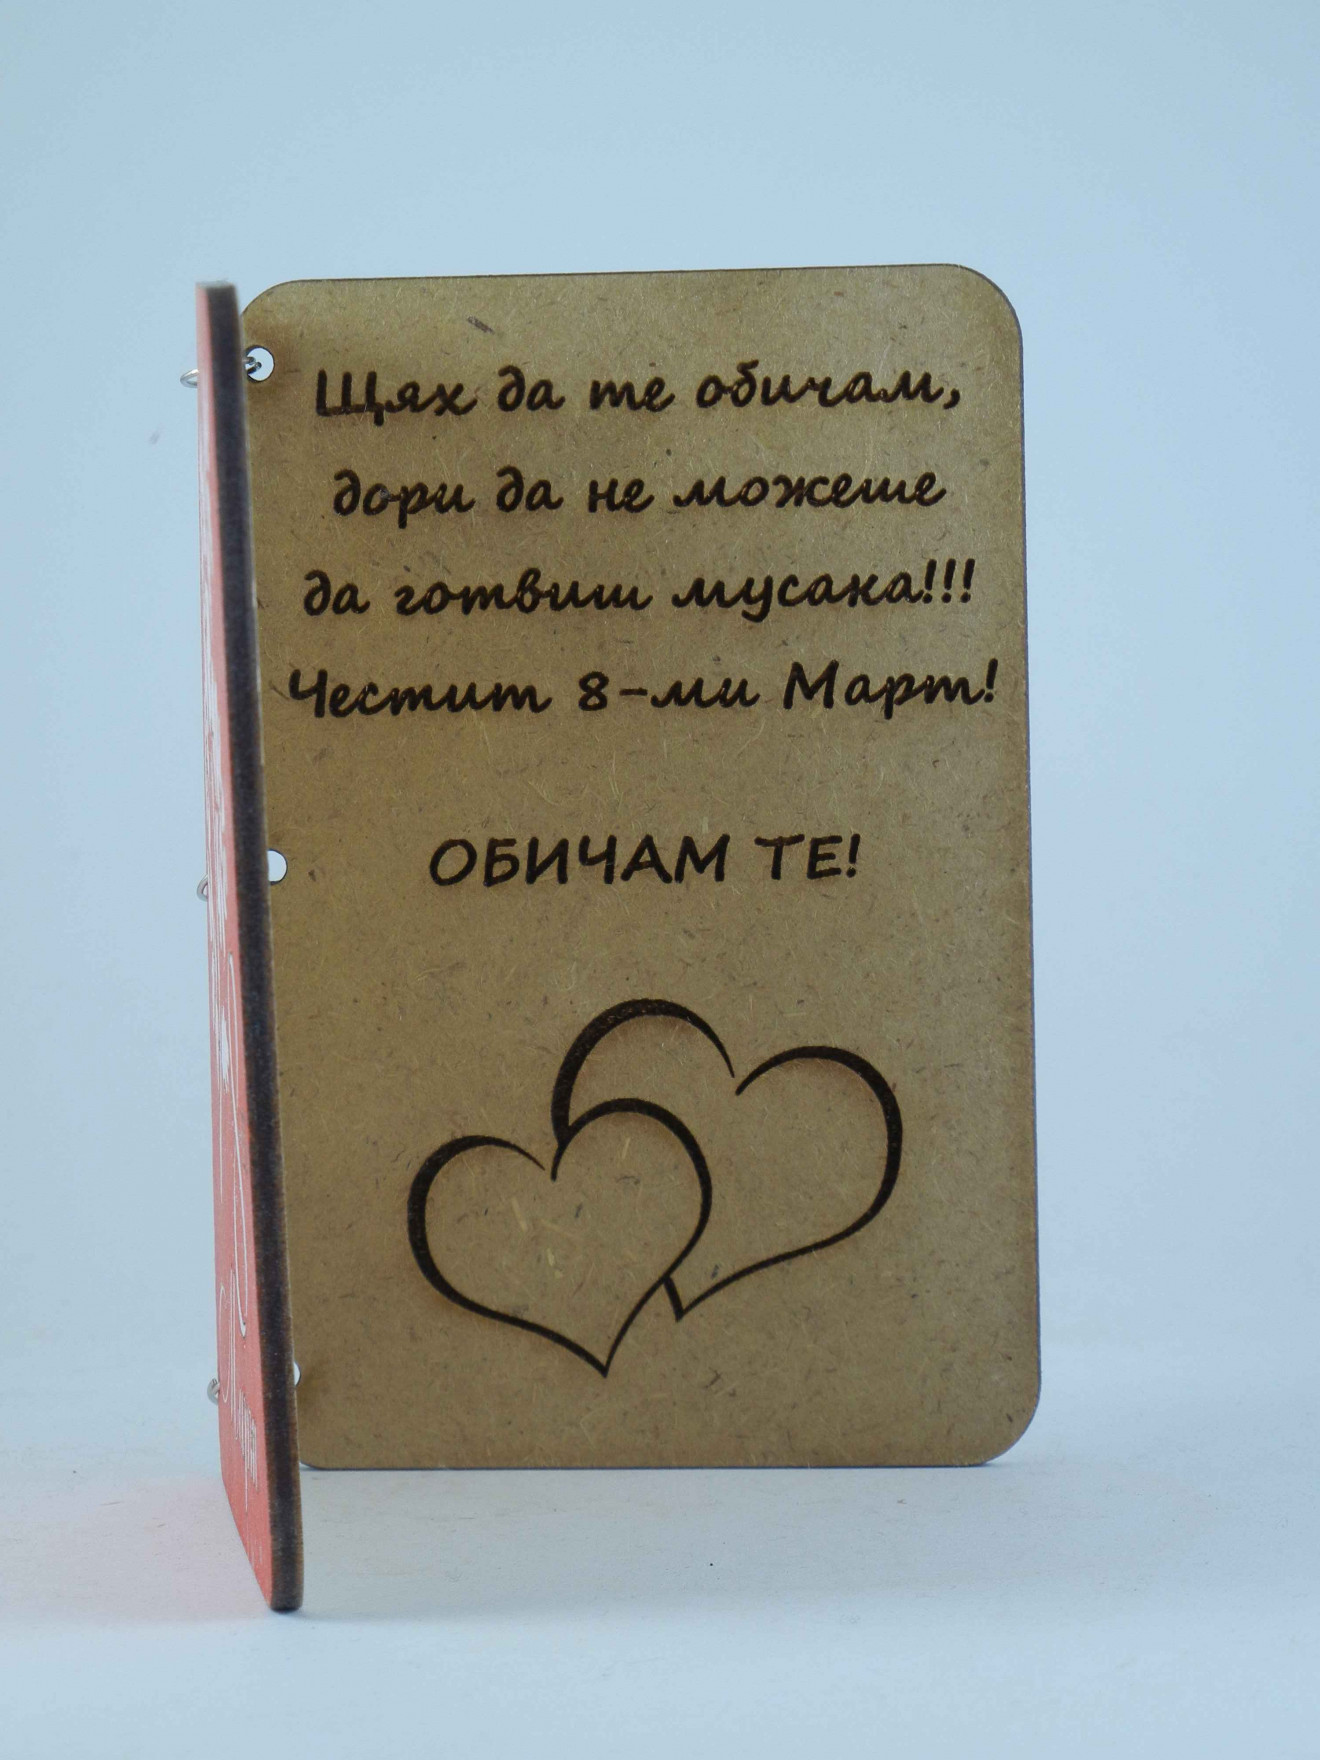 Щях да те обичам,
дори да не можеше
да готвиш мусака!!!
Честит 8-ми Март!
ОБИЧАМ ТЕ!